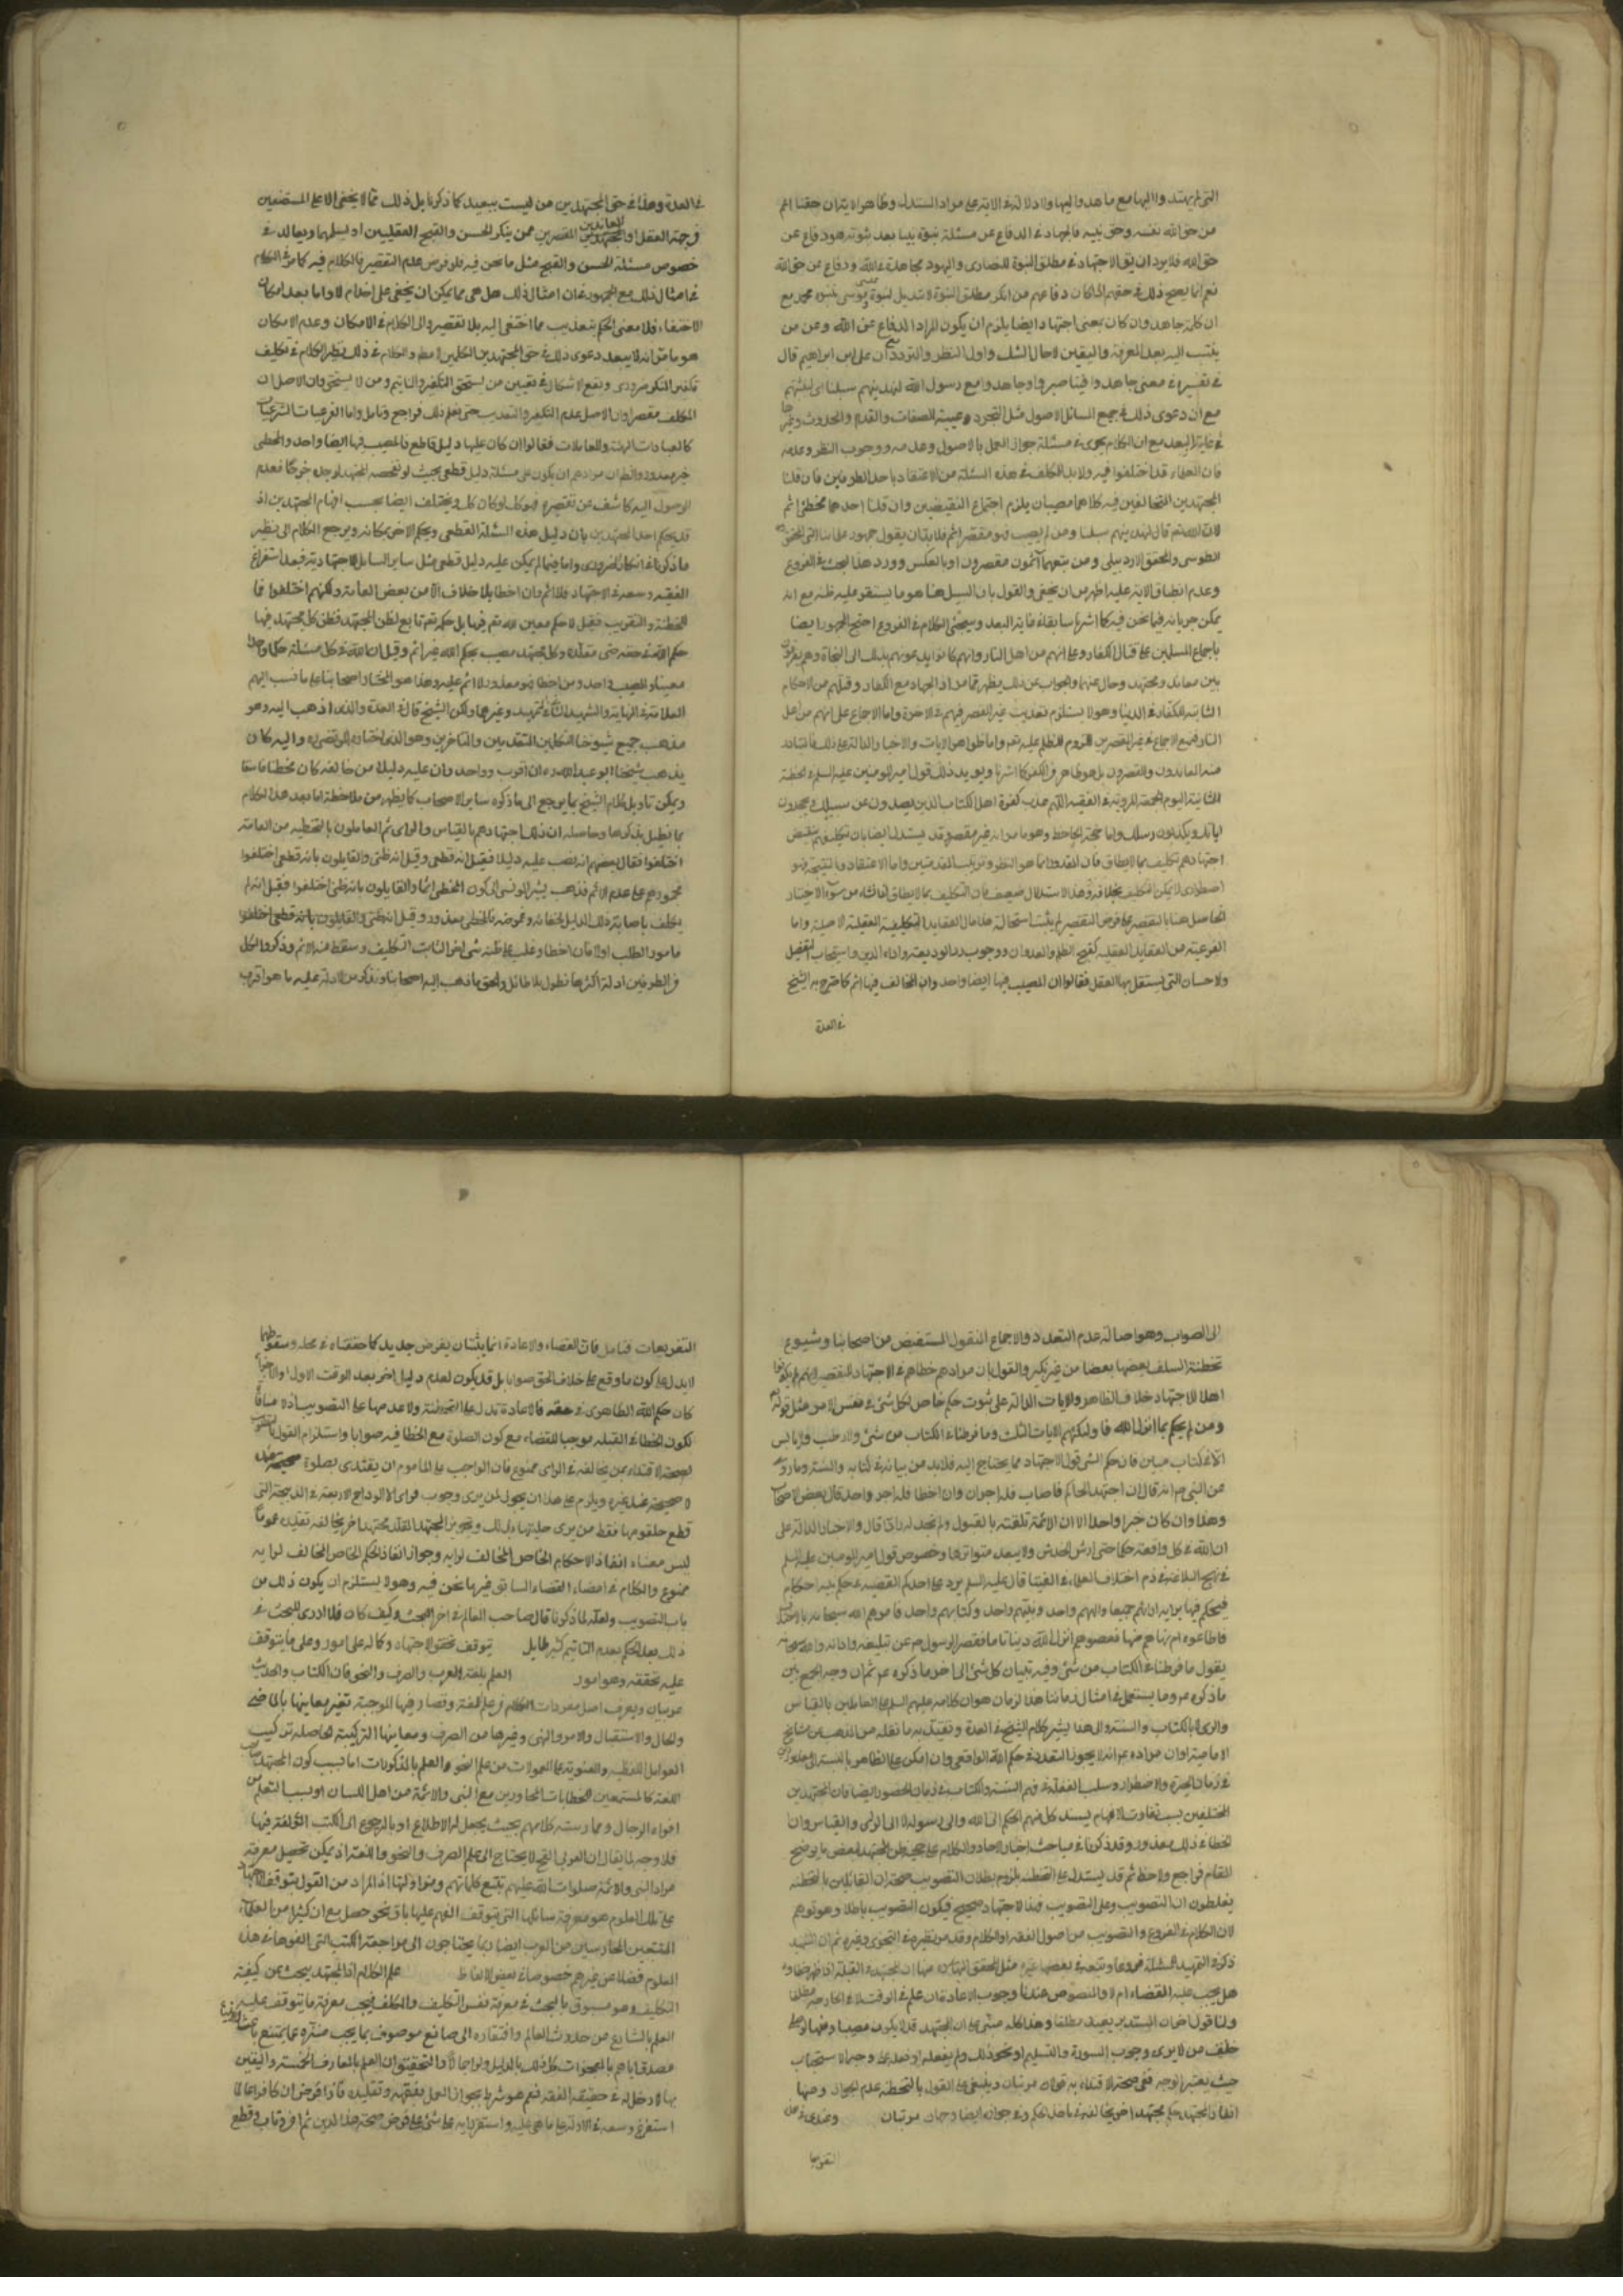 التي لم يهتدوا اليها مع ما هدوا اليها ولا دلالة في الاية على مراد المستدل وظاهر الايتان حقنا اعم
من حق الله نفسه وحق نبيه فالجهاد في الدفاع عن مسئلة نبوة نبينا بعد ثبوته هو دفاع عن
حق الله فلا يرد ان يق الاجتهاد في مطلق النبوة للنصارى واليهود مجاهدة في الله ودفاع عن حق الله
نعم انما يصح ذلك في حقهم اذا كان دفاعهم من انكر مطلق النبوة لا تبديل نبوة موسى بنبوة محمد مع
ان كلمة جاهد وان كان بمعنى اجتهد ايضا يلزم ان يكون المراد الدفاع عن الله وعن من
ينتسب اليه بعد المعرفة واليقين لا حال الشك واول النظر والتردد مع ان علي بن ابراهيم قال
في تفسيره في معنى جاهدوا فينا صبروا وجاهدوا مع رسول الله لنهدينهم سبلنا اى لنثبتهم
مع ان دعوى ذلك في جميع المسائل الاصول مثل التجرد وعينية الصفات والقدم والحدوث وغيرها
في غاية البعد مع ان الكلام يجرى في مسئلة جواز العمل بالاصول وعدمه ووجوب النظر وعدمه
فان العلماء قد اختلفوا فيه ولا بد للمكلف في هذه المسئلة من الاعتقاد باحد الطرفين فان قلنا
المجتهدين المتخالفين فيه كلاهما مصيبان يلزم اجتماع النقيضين وان قلنا احدهما مخطئ اثم
لان الله تعالى قال لنهدينهم سبلنا ومن لم يصب فهو مقصر اثم فلا بد ان يقول جمهور علمائنا حتى المحقق
الطوسى والمحقق الاردبيلى ومن تبعهما آثمون مقصرون او بالعكس وورد هذا البحث في الفروع
وعدم انطباق الاية عليه اظهر من ان يخفى والقول بان السبيل هنا هو ما يستقر عليه ظنه مع انه
يمكن جريانه فيما نحن فيه كما اشرنا سابقا في غاية البعد وسيجئ الكلام في الفروع احتج الجمهور ايضا
باجماع المسلمين على قتال الكفار وعلى انهم من اهل النار وانهم كانوا يدعونهم بذلك الى النجاة وهم لا يفرقون
بين معاند ومجتهد وخال عنهما والجواب عن ذلك يظهر مما مر اذ الجهاد مع الكفار وقتلهم من الاحكام
الثابتة للكفار في الدنيا وهو لا يستلزم تعذيب غير المقصر فيهم في الاخرة واما الاجماع على انهم من اهل
النار فمع الاجماع في غير المقصرين للزوم الظلم عليه تعالى واما ظواهر الايات والاخبار الدالة على ذلك فالمتبادر
منه المعاندون والمقصرون بل هو ظاهر في الكفر كما اشرنا ويؤيد ذلك قول امير المومنين عليه السلم في خطبته
الثانية اليوم الجمعة المروية في الفقيه اللهم عذب كفرة اهل الكتاب الذين يصدون عن سبيلك ويجحدون
اياتك ويكذبون رسلك واما حجة الجاحظ وهو ما مر انه غير مقصر وقد يستدل ايضا بان تكليفهم بنقيض
اجتهادهم تكليف بما لا يطاق فان المقدور انما هو النظر وترتيب المقدمتين واما الاعتقاد بالنتيجة فهو
اضطرارى لا يمكن التكليف بخلافه وهذا الاستدلال ضعيف فان التكليف بما لا يطاق اذا نشاء من سوء الاختيار
الحاصل هنا بالتقصير على فرض التقصير لم يثبت استحالته هذا حال العقايد التكليفية العقلية الاصلية واما
الفرعية من العقايد العقلية كقبح الظلم والعدوان ووجوب رد الوديعة واداء الدين واستحباب التفضل
والاحسان التى يستقل بها العقل فقالوا ان المصيب فيها ايضا واحد وان المخالف فيها اثم كما صرح به الشيخ
في العدة
في العدة وهذا في حق المجتهدين من ليست ببعيد كما ذكرنا بل ذلك مما لا يخفى الا على المستضعفين
من جهة العقل او المعاندين المقصرين ممن ينكر الحسن والقبح العقليين او يسلمهما ويعاند في
خصوص مسئلة الحسن والقبح مثل ما نحن فيه فلو فرض عدم التقصير فالكلام فيه كما مر والكلام
في امثال ذلك مع الجمهور في ان امثال ذلك هل هى مما يمكن ان يخفى على احد ام لا واما بعد امكان
الاختفاء فلا معنى للحكم بتعذيب من اختفى اليه بلا تقصير والى الكلام في الامكان وعدم الامكان
هو ما مر انه لا يبعد دعوى ذلك في حق المجتهدين الكاملين والكلام في ذلك نظير الكلام في تكليف
تكفير المنكر ضرورى ويقع الاشكال في تعيين من يستحق التكفير والتاثيم ومن لا يستحق وان الاصل ان
المكلف مقصر او ان الاصل عدم التكفير والتعذيب حتى يعلم ذلك فراجع وتامل واما الفرعيات الشرعيات
كالعبادات البدنية والمعاملات فقالوا ان كان عليها دليل قاطع فالمصيب فيها ايضا واحد والمخطى
غير معذور والظاهر ان مرادهم ان يكون على مسئلة دليل قطعى بحيث لو تفحصه المجتهد لوجده جزما فعدم
الوصول اليه كاشف عن تقصيره فهو كك لو كان كك ويختلف ايضا بحسب افهام المجتهدين اذ
قد يحكم احد المجتهدين بان دليل هذه المسئلة القطعى ويحكم الاخر بمكانه ويرجع الكلام الى نظير
ما ذكرنا في انكار الضرورى واما فيما لم يمكن عليه دليل قطعى مثل ساير المسائل الاجتهادية فبعد استفراغ
الفقيه وسعه في الاجتهاد فلا اثم وان اخطا بلا خلاف الا من بعض العامة ولكنهم اختلفوا في
التخطئة والتصويب فقيل لا حكم معين لله تعالى فيها بل حكمه تعالى تابع لظن المجتهد فظن كل مجتهد فيها
حكم الله في حقه وحق مقلده وكل مجتهد مصيب بحكم الله غير اثم وقيل ان لله في كل مسئلة حكما واحدا
معينا والمصيب واحد ومن اخطا فهو معذور ولا اثم عليه وهذا هو المختار لاصحابنا على ما نسب اليهم
العلامة في النهاية والشهيد الثانى في التمهيد وغيرهما ولكن الشيخ قال في العدة والذى اذهب اليه وهو
مذهب جميع شيوخنا المتكلمين المتقدمين والمتاخرين وهو الذى اختاره المرتضى ره واليه كان
يذهب شيخنا ابو عبد الله ره ان الحق واحد وان عليه دليلا من خالفه كان مخطئا فاسقا
ويمكن تاويل كلام الشيخ بما يرجع الى ما ذكره ساير الاصحاب كما يظهر من ملاحظة ما بعد هذا الكلام
مما نطيل بذكرها وحاصله ان ذلك اجتهادهم بالقياس والراى ثم العاملون بالتخطئة من العامة
اختلفوا فقال بعضهم انه نصب عليه دليلا فقيل انه قطعى وقيل انه ظنى والقايلون بانه قطعى اختلفوا
فجمهورهم على عدم الاثم فذهب بشر المريسى الى كون المخطى اثما والقايلون بانه ظنى اختلفوا فقيل انه لم
يكلف باصابة ذلك الدليل لخفائه وغموضه فالمخطى معذور وقيل انه
مامور بالطلب اولا فان اخطا وغلب على ظنه شى اخر انقلب التكليف وسقط عنه الاثم وذكروا لكل
من الطرفين ادلة اكثرها نطول بلا طائل والحق ما ذهب اليه اصحابنا ونذكر من الادلة عليه ما هو اقرب
الى الصواب وهو اصالة عدم التعدد والاجماع المنقول المستفيض من اصحابنا وشيوع
تخطئة السلف بعضها بعضا من غير نكير والقول بان مرادهم خطاهم في الاجتهاد للتقصير او انهم لم يكونوا
اهلا للاجتهاد خلاف الظاهر والايات الدالة على ثبوت حكم خاص لكل شئ في نفس الامر مثل قوله تعالى
ومن لم يحكم بما انزل الله فاولئك هم الايات الثلث وما فرطنا في الكتاب من شئ ولا رطب ولا يابس
الا في كتاب مبين فان حكم الشئ قبل الاجتهاد مما يحتاج اليه فلا بد من بيانه في كتابه والسنة وما روى
عن النبى ص انه قال ان اجتهد الحاكم فاصاب فله اجران وان اخطا فله اجر واحد قال بعض الاصحاب
وهذا وان كان خبرا واحدا الا ان الائمة تلقته بالقبول ولم نجد له رادا قال والاخبار الدالة على
ان لله في كل واقعة حكما حتى ارش الخدش ولا يبعد تواترها وخصوص قول امير المومنين عليه السلم
في نهج البلاغة في ذم اختلاف العلماء في الفتيا قال عليه السلم يرد على احدكم القضية في حكم من الاحكام
فيحكم فيها برايه
فاطاعوه ام نهاهم عنها فعصوه ام انزل الله دينا تاما فقصر الرسول ص عن تبليغه وادائه والله سبحانه
يقول ما فرطنا في الكتاب من شئ وفيه تبيان كل شئ الى اخر ما ذكره ع ثم ان وجه الجمع بين
ما ذكره ع وما يستعمل في امثال زماننا هذا هو ان كلامه عليه السلم على العاملين بالقياس
والراى لا بالكتاب والسنة والى هذا يشير كلام الشيخ في العدة وتقييده ما نقله من المذهب عن مشايخ
الامامية او ان مراده ع انه لا يجوز التعدد في حكم الله الواقعى وان امكن على الظاهر بالنسبة الى المعذورين
في زمان الحيرة والاضطرار وسلب الغفلة في فهم السنة والكتاب في زمان الحضور ايضا فان المجتهدين
المختلفين بسبب تفاوت الافهام يسند كل منهم الحكم الى الله والى رسوله لا الى الراى والقياس وان
اخطا في ذلك معذور وقد ذكرنا في مباحث اخبار الاحاد والكلام على حجية ظن المجتهد بعض ما يوضح
المقام فراجع ولاحظ ثم قد يستدل على التخطئة بلزوم بطلان التصويب صحته ان القائلين بالتخطئة
يغلطون ان التصويب وعلى التصويب فهذا الاجتهاد صحيح فيكون التصويب باطلا وهو توهم
لان الكلام في الفروع والتصويب من اصول الفقه او الكلام وقد مر نظيره في التجزى وغيره ثم ان الشهيد
ذكر في التمهيد للمسئلة فروعا وتبعه في بعضها غيره مثل المحقق البهائى ره منها ان المجتهد في القبلة اذا ظهر خطاؤه
هل يجب عليه القضاء ام لا والمنصوص عندنا وجوب الاعادة ان علم في الوقت لا في الخارج مطلقا
ولنا قول ضمان المستدبر يعيد مطلقا وهذا كله مبنى على ان المجتهد قد لا يكون مصيبا ومنها لو صلى
خلف من لا يرى وجوب السورة والتسليم او نحو ذلك ولم يفعله او فعله على وجه الاستحباب
حيث يعتبر الوجه ففى صحة الاقتداء به قولان مرتبان وينبغى على القول بالتخطئة عدم الجواز ومنها
انفاذ المجتهد حكم مجتهد اخر يخالفه في ماخذ الحكم وفي جوازه ايضا وجهان مرتبان وعندى في هذه
التفريعا
التفريعات فتامل فان القضاء والاعادة انما يثبتان بفرض جديد كما حققناه في محله وسقوطهما
لا يدل على كون ما وقع على خلاف الحق صوابا بل قد يكون لعدم دليل اخر بعد الوقت الاول والاجزاء
كان حكم الله الظاهرى في حقه فالاعادة تدل على التخطئة ولا عدمها على التصويب اذ لا منافاة
لكون الخطا في القبلة موجبا للقضاء مع كون الصلوة مع الخطا فيه صوابا واستلزام القول بالتصويب
لصحة الاقتداء بمن يخالفه في الراى ممنوع فان الواجب على الماموم ان يقتدى بصلوة صحيحة عنده
لا صحيحة عند غيره ويلزم على هذا ان يجوز لمن يرى وجوب فرى الاوداج الاربعة في الذبيحة التى
قطع حلقومها فقط من يرى حليتها بذلك وتجويز المجتهد المقلد مجتهد اخر يخالفه تقليده عموما
ليس معناه انفاذ الاحكام الخاص المخالف لرايه وجواز انفاذ الحكم الخاص المخالف لرايه
ممنوع والكلام في امضاء القضاء السابق غير ما نحن فيه وهو لا يستلزم ان يكون ذلك من
باب التصويب ولعله لما ذكرنا قال صاحب المعالم في اخر البحث وكيف كان فلا ارى للبحث في
ذلك بعد الحكم بعدم التاثيم كثير طايل يتوقف تحقق الاجتهاد وكماله على امور وعلى ما يتوقف
عليه تحققه وهو امور العلم بلغة العرب والصرف والنحو فان الكتاب والحديث
عربيان ويعرف اصل مفردات الكلام من علم اللغة وتصاريفها الموجبة تغير معانيها بالماضى
والحال والاستقبال والامر والنهى وغيرها من الصرف ومعانيها التركيبية الحاصلة تركيب
العوامل اللفظية والمعنوية على المعمولات من علم النحو والعلم بالمذكورات اما بسبب كون المجتهد صاحب
اللغة كالمستمعين للخطابات المحاورين مع النبى والائمة من اهل اللسان او بسبب التعلم من
افواه الرجال وممارسة كلامهم بحيث يحصل له الاطلاع او بالرجوع الى الكتب المؤلفة فيها
فلا وجه لما يقال ان العربى القح لا يحتاج الى علم الصرف والنحو واللغة اذ يمكن تحصيل معرفة
مراد النبى والائمة صلوات الله عليهم بتتبع كلماتهم ومزاولتها اذ المراد من القول بتوقف الاجتهاد
على تلك العلوم هو معرفة مسائلها التى يتوقف الفهم عليها باى نحو حصل مع ان كثيرا من العلماء
المتتبعين الممارسين من العرب ايضا ربما يحتاجون الى مراجعة الكتب التى الفوها في هذه
العلوم فضلا عن غيرهم خصوصا في بعض الالفاظ علم الكلام اذ المجتهد يبحث عن كيفية
التكليف وهو مسبوق بالبحث في معرفة نفس التكليف والمكلف فيجب معرفة ما يتوقف عليه
العلم بالشارع من حدوث العالم وافتقاره الى صانع موصوف بما يجب منزه عما يمتنع باعث للانبياء
مصدقا اياهم بالمعجزات كل ذلك بالدليل ولو اجمالا والتحقيق ان العلم بالمعارف الخمسة واليقين
بها لا دخل له في حقيقة الفقه نعم هو شرط لجواز العمل بفقهه وتقليده فاذا فرض ان كافرا عالما
استفرغ وسعه في الادلة على ما هى عليه واستقر رايه على شئ على فرض صحة هذا الدين ثم امن وتاب وقطع